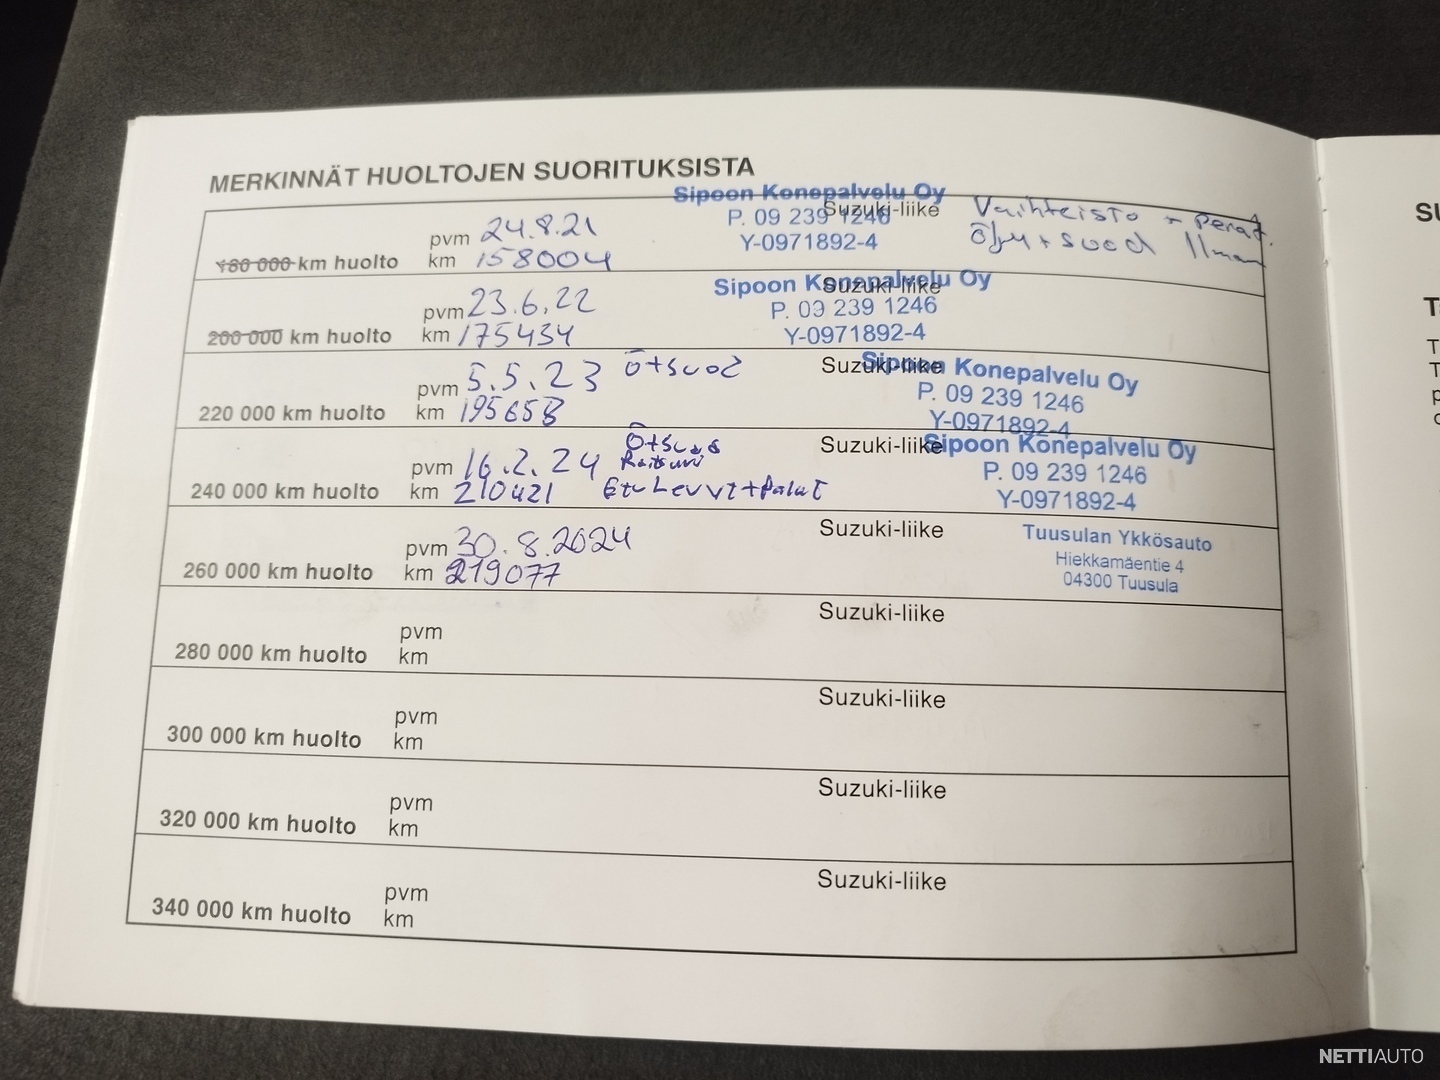 MERKINNÄT HUOLTOJEN SUORITUKSISTA
180 000 km huolto
pvm 24.8.21
km 158004
Suzuki-liike
Sipoon Konepalvelu Oy
P. 09 239 1246
Y-0971892-4
Vaihteisto + perät.
öljy + suod Ilman
200 000 km huolto
pvm 23.6.22
km 175434
Suzuki-liike
Sipoon Konepalvelu Oy
P. 09 239 1246
Y-0971892-4
220 000 km huolto
pvm 5.5.23 Ö+suod
km 195658
Suzuki-liike
Sipoon Konepalvelu Oy
P. 09 239 1246
Y-0971892-4
240 000 km huolto
pvm 16.2.24
km 210421
Ö+suod
Etulevyt+Palat
Suzuki-liike
Sipoon Konepalvelu Oy
P. 09 239 1246
Y-0971892-4
260 000 km huolto
pvm 30.8.2024
km 219077
Suzuki-liike
Tuusulan Ykkösauto
Hiekkamäentie 4
04300 Tuusula
280 000 km huolto
pvm
km
Suzuki-liike
300 000 km huolto
pvm
km
Suzuki-liike
320 000 km huolto
pvm
km
Suzuki-liike
340 000 km huolto
pvm
km
Suzuki-liike
NETTIAUTO